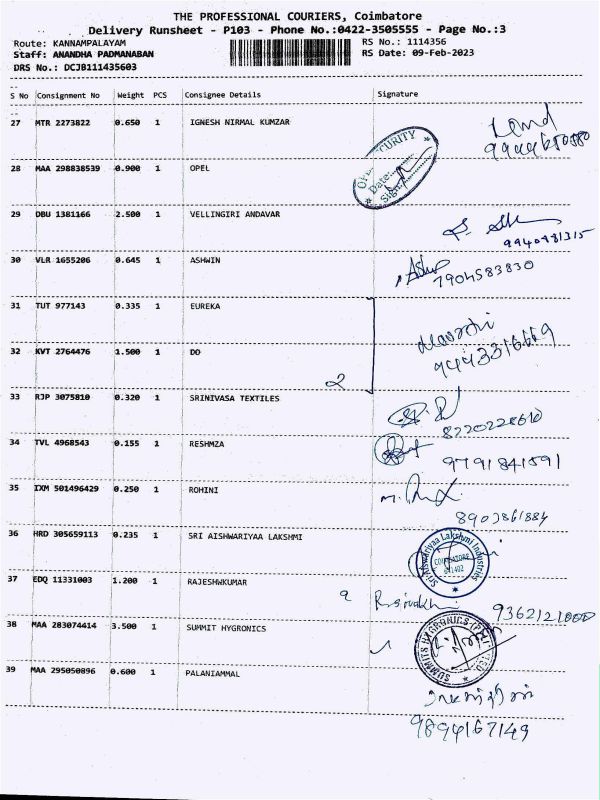 THE PROFESSIONAL COURIERS, Coimbatore
Delivery Runsheet - P103 - Phone No.:0422-3505555 - Page No.:3
Route: KANNAMPALAYAM RS No.: 1114356
Staff: ANANDHA PADMANABAN RS Date: 09-Feb-2023
DRS No.: DCJB111435603
S No Consignment No Weight PCS Consignee Details Signature
27 MTR 2273822 0.650 1 IGNESH NIRMAL KUMZAR
28 MAA 298838539 0.900 1 OPEL
SECURITY
Date:
Sign:
29 DBU 1381166 2.500 1 VELLINGIRI ANDAVAR
9940981315
30 VLR 1655206 0.645 1 ASHWIN
7904583830
31 TUT 977143 0.335 1 EUREKA
32 KVT 2764476 1.500 1 DD
2
9443316669
33 RJP 3075810 0.320 1 SRINIVASA TEXTILES
8220228610
34 TVL 4968543 0.155 1 RESHMZA
9791841591
35 IXM 501496429 0.250 1 ROHINI
8903861884
36 HRD 305659113 0.235 1 SRI AISHWARIYAA LAKSHMI
Sri Aishwariyaa Lakshmi Industries
COIMBATORE
37 EDQ 11331003 1.200 1 RAJESHWKUMAR
9362121000
38 MAA 283074414 3.500 1 SUMMIT HYGRONICS
SUMMITS HYGRONICS
39 MAA 295050896 0.600 1 PALANIAMMAL
9894167149